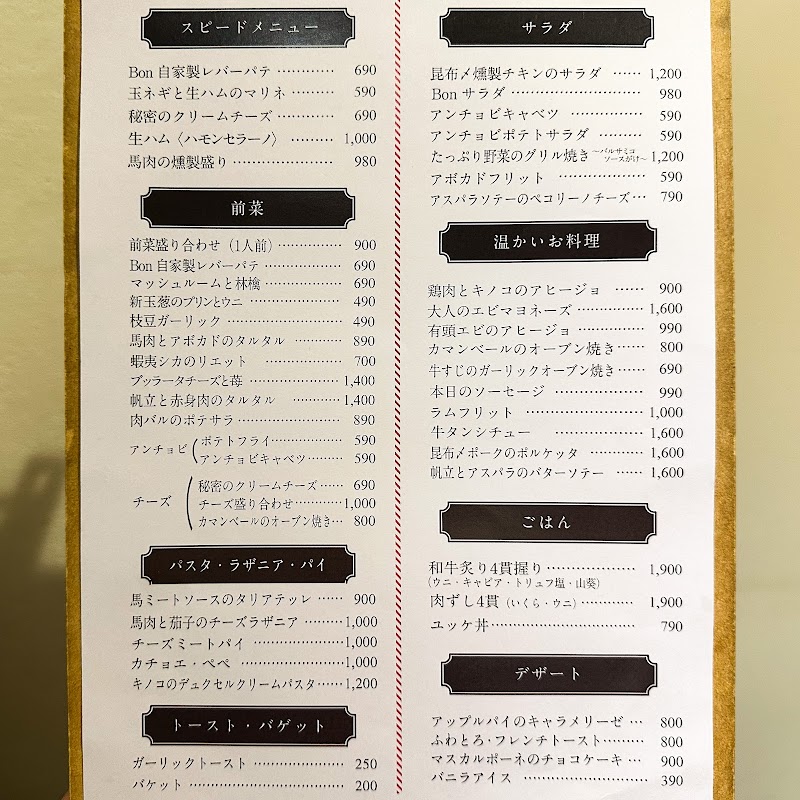 スピードメニュー
Bon 自家製レバーパテ ………… 690
玉ネギと生ハムのマリネ ……… 590
秘密のクリームチーズ ………… 690
生ハム〈ハモンセラーノ〉 ……… 1,000
馬肉の燻製盛り ……………… 980
前菜
前菜盛り合わせ（1人前）………… 900
Bon 自家製レバーパテ …………… 690
マッシュルームと林檎 …………… 690
新玉葱のプリンとウニ …………… 490
枝豆ガーリック ………………… 490
馬肉とアボカドのタルタル ……… 890
蝦夷シカのリエット ……………… 700
ブッラータチーズと苺 …………… 1,400
帆立と赤身肉のタルタル ………… 1,400
肉バルのポテサラ ……………… 890
アンチョビ
ポテトフライ…………… 590
アンチョビキャベツ……… 590
チーズ
秘密のクリームチーズ…… 690
チーズ盛り合わせ………… 1,000
カマンベールのオーブン焼き… 800
パスタ・ラザニア・パイ
馬ミートソースのタリアテッレ …… 900
馬肉と茄子のチーズラザニア ……… 1,000
チーズミートパイ ……………… 1,000
カチョエ・ペペ ………………… 1,000
キノコのデュクセルクリームパスタ…… 1,200
トースト・バゲット
ガーリックトースト ……………… 250
バケット ………………………… 200
サラダ
昆布〆燻製チキンのサラダ …… 1,200
Bon サラダ ……………………… 980
アンチョビキャベツ …………… 590
アンチョビポテトサラダ ……… 590
たっぷり野菜のグリル焼き ～バルサミコソースがけ～ 1,200
アボカドフリット ……………… 590
アスパラソテーのペコリーノチーズ… 790
温かいお料理
鶏肉とキノコのアヒージョ …… 900
大人のエビマヨネーズ ………… 1,600
有頭エビのアヒージョ ………… 990
カマンベールのオーブン焼き…… 800
牛すじのガーリックオーブン焼き…… 690
本日のソーセージ ……………… 990
ラムフリット …………………… 1,000
牛タンシチュー ………………… 1,600
昆布〆ポークのポルケッタ …… 1,600
帆立とアスパラのバターソテー …… 1,600
ごはん
和牛炙り4貫握り ……………… 1,900
（ウニ・キャビア・トリュフ塩・山葵）
肉ずし4貫（いくら・ウニ）………… 1,900
ユッケ丼………………………… 790
デザート
アップルパイのキャラメリーゼ … 800
ふわとろ・フレンチトースト……… 800
マスカルポーネのチョコケーキ … 900
バニラアイス …………………… 390